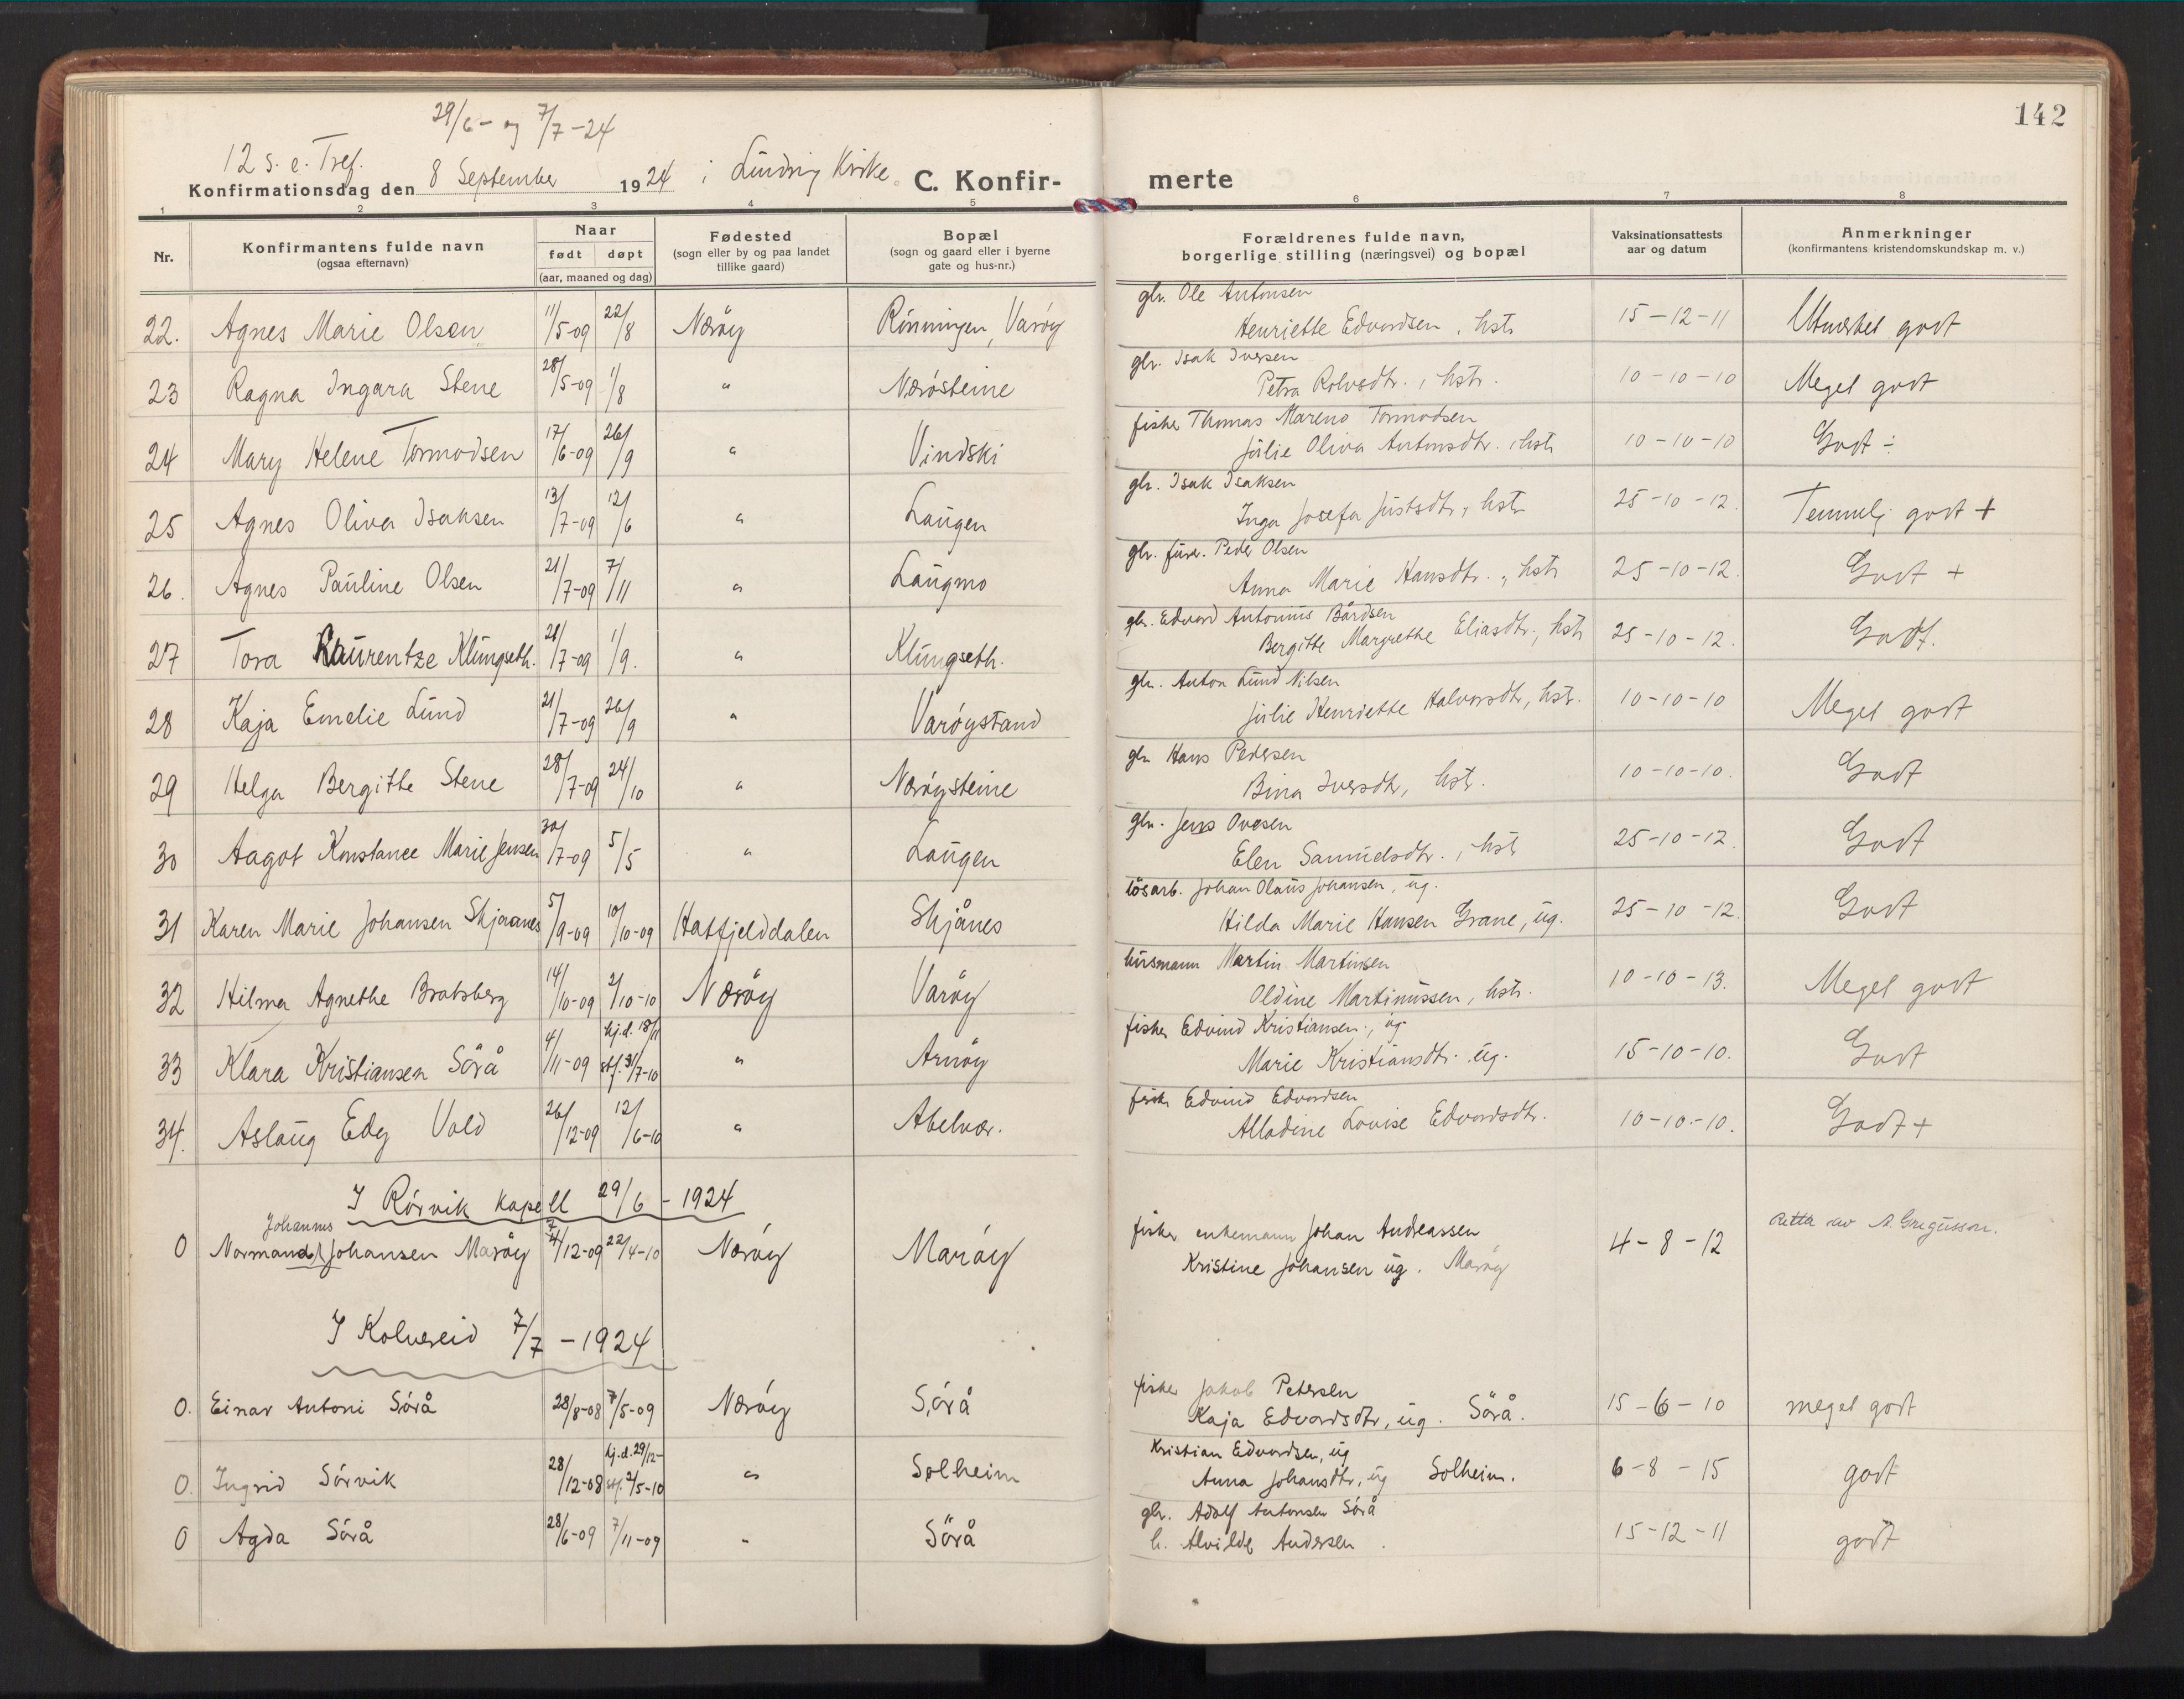 142
29/6 - og 7/7 - 24
12 s. e. Tref.
Konfirmationsdag den 8 September 1924 i Lundring Kirke. C. Konfir- merte
1 2 3 4 5 6 7 8
Nr.
Konfirmantens fulde navn
(ogsaa efternavn)
Naar
født døpt
(aar, maaned og dag)
Fødested
(sogn eller by og paa landet
tillike gaard)
Bopæl
(sogn og gaard eller i byerne
gate og hus-nr.)
Forældrenes fulde navn,
borgerlige stilling (næringsvei) og bopæl
Vaksinationsattests
aar og datum
Anmerkninger
(konfirmantens kristendomskundskap m. v.)
22. Agnes Marie Olsen 11/5-09 22/8 Nærøy Rönningen, Varöy gbr. Ole Antonsen
Henriette Edvardsen, hstr 15-12-11 Utmerket godt
23 Ragna Ingara Stene 28/5-09 1/8 " Nærösteine gbr. Isak Iversen
Petra Rolvsdtr., hstr. 10-10-10 Meget godt
24 Mary Helene Tormodsen 17/6-09 26/9 " Vindski fisker Thomas Mareno Tormodsen
Julie Oliva Antonsdtr., hstr 10-10-10 Godt ÷
25 Agnes Oliva Isaksen 13/7-09 12/6 " Laugen gbr. Isak Isaksen
Inga Josefa Justsdtr, hstr 25-10-12. Temmelig godt +
26. Agnes Pauline Olsen 21/7-09 7/11 " Laugmo gbr. fhv. Peder Olsen
Anna Marie Hansdtr., hstr 25-10-12. Godt +
27 Tora Laurentze Klungseth. 21/7-09 1/9. " Klungseth. gbr. Edvard Antonius Bårdsen
Bergitte Margrethe Eliasdtr., hstr 25-10-12. Godt.
28 Kaja Emelie Lund 21/7-09 26/9 " Varöystrand gbr. Anton Lund Nilsen
Julie Henriette Halvorsdtr, hstr. 10-10-10 Meget godt
29 Helga Bergitte Stene 28/7-09 24/10 " Nærøysteine gbr Hans Pedersen
Bina Iversdtr, hstr. 10-10-10. Godt
30 Aagot Konstance Marie Jensen 30/7-09 5/5 " Laugen gbr. Jens Ovesen
Elen Samuelsdtr., hstr 25-10-12 Godt
31 Karen Marie Johansen Skjaanes 5/9-09 10/10-09 Hatfjelddalen Skjånes lösarb. Johan Olaus Johansen, ug.
Hilda Marie Hansen Grane, ug. 25-10-12. Godt
32 Hilma Agnethe Bratsberg 14/10-09 2/10-10 Nærøy Varöy husmann Martin Martinsen
Oldine Martinussen, hstr. 10-10-13. Meget godt
33 Klara Kristiansen Sörå 4/11-09 hj.d. 18/11 stf. 31/7-10 " Arnöy fisker Edvind Kristiansen, ug
Marie Kristiansdtr. ug. 15-10-10. Godt
34. Aslaug Edy Vold 26/12-09 12/6-10 " Abelvær. fisk. Edvind Edvardsen
Alladine Lovise Edvardsdtr. 10-10-10. Godt +
I Rörvik kapell 29/6 - 1924
Johannes
0 Normand Johansen Maröy 12-09 22/4-10 Nærøy Maröy fisker enkemann Johan Andreassen
Kristine Johansen ug. Maröy 4-8-12 Rettet av A. Gregusson.
I Kolvereid 7/7 - 1924
0. Einar Antoni Sörå 28/8-08 7/5-09 Nærøy Sörå fisker Jakob Petersen
Kaja Edvardsdtr, ug. Sörå. 15-6-10 meget godt
0. Ingrid Sörvik 28/12-08 hj.d. 29/12- stf. 2/5-10 " Solheim Kristian Edvardsen, ug
Anna Johansdtr, ug Solheim. 6-8-15 godt
0 Agda Sörå 28/6-09 7/11-09 " Sörå gbr. Adolf Antonsen Sörå
h. Alvilde Andersen. 15-12-11 godt